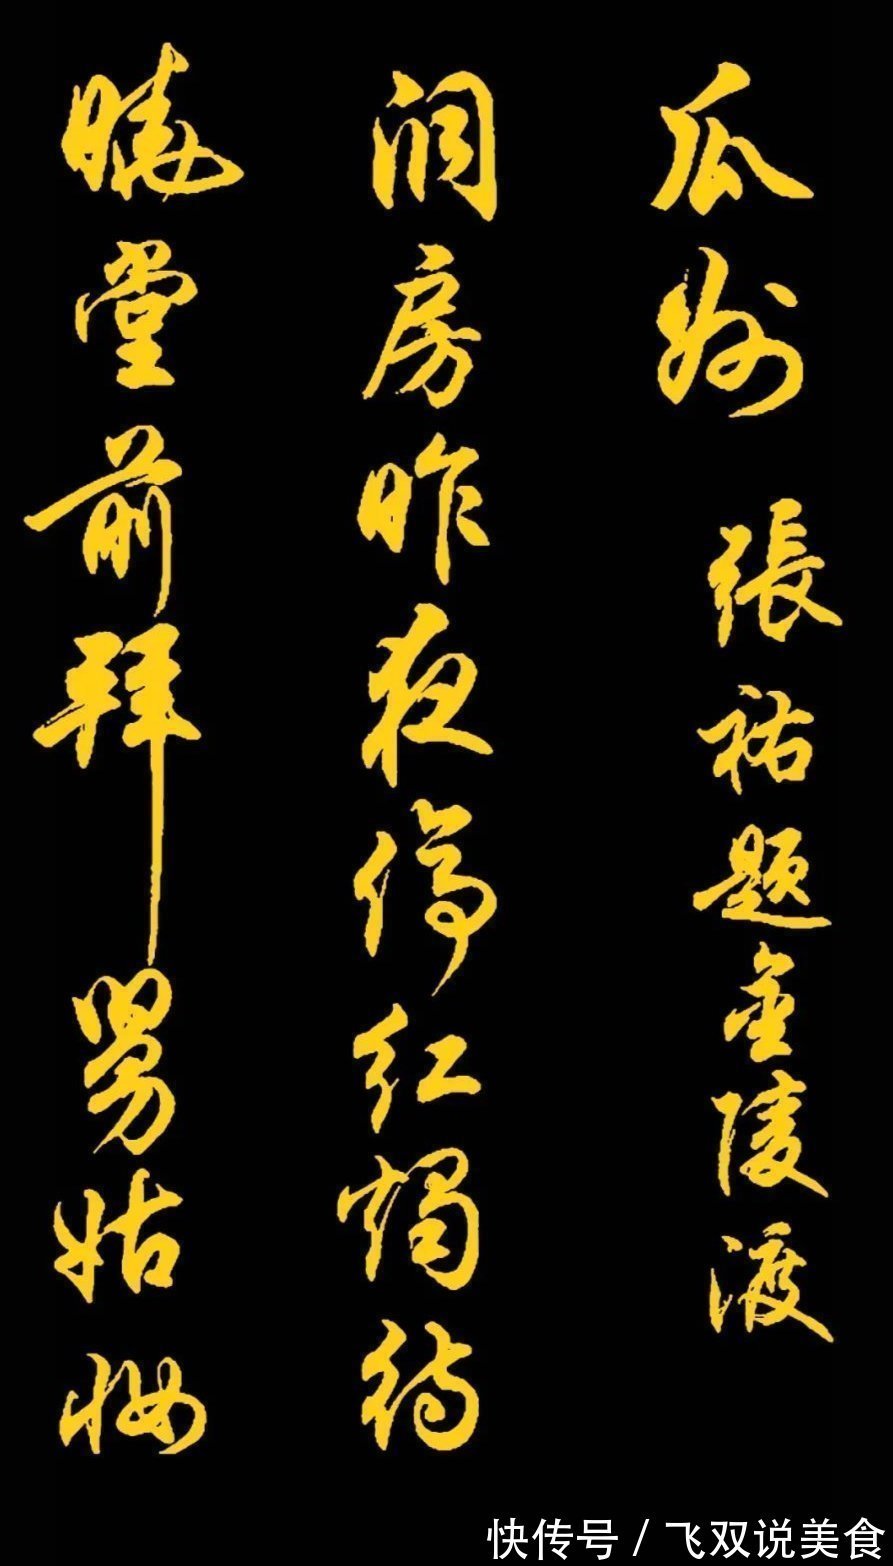 瓜州 張祐题金陵渡
洞房昨夜停红烛待
晓堂前拜舅姑妆
快传号 / 飞双说美食